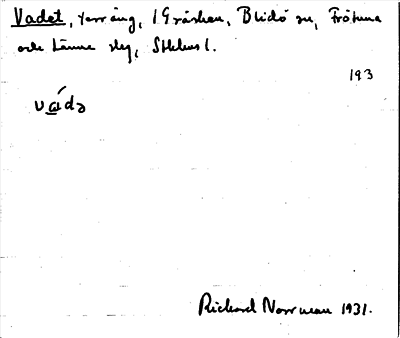 Vadet, terräng, i Gräskan, Blidö sn, Frötuna
och Länna slg, Sthlms l.
193
vádə
Richard Norrman 1931.